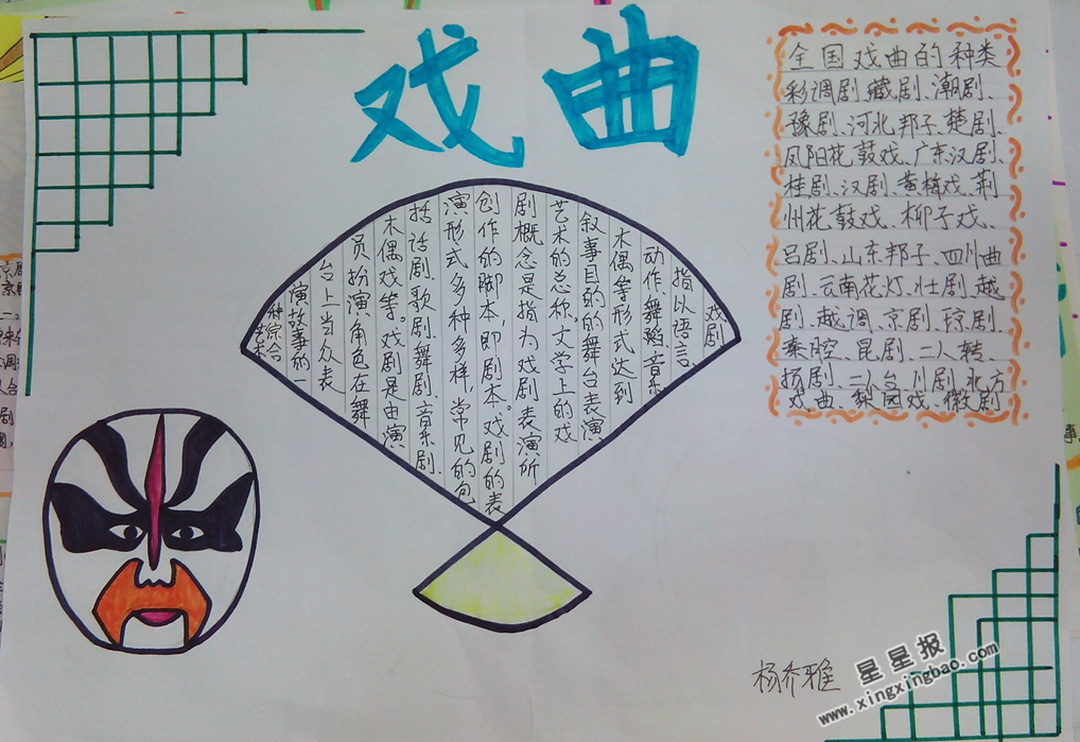 戏曲
戏剧
指以语言、
动作、舞蹈、音乐
木偶等形式达到
叙事目的的舞台表演
艺术的总称。文学上的戏
剧概念是指为戏剧表演所
创作的脚本，即剧本。戏剧的表
演形式多种多样，常见的包
括话剧、歌剧、舞剧、音乐剧、
木偶戏等。戏剧是由演
员扮演角色在舞
台上当众表
演故事的一
种综合
艺术
全国戏曲的种类
彩调剧、藏剧、潮剧、
豫剧、河北邦子、楚剧、
凤阳花鼓戏、广东汉剧、
桂剧、汉剧、黄梅戏、荆
州花鼓戏、柳子戏、
吕剧、山东邦子、四川曲
剧、云南花灯、壮剧、越
剧、越调、京剧、琼剧、
秦腔、昆剧、二人转、
扬剧、二人台、川剧、北方
戏曲、梨园戏、徽剧
杨乔雅
星星报
www.xingxingbao.com